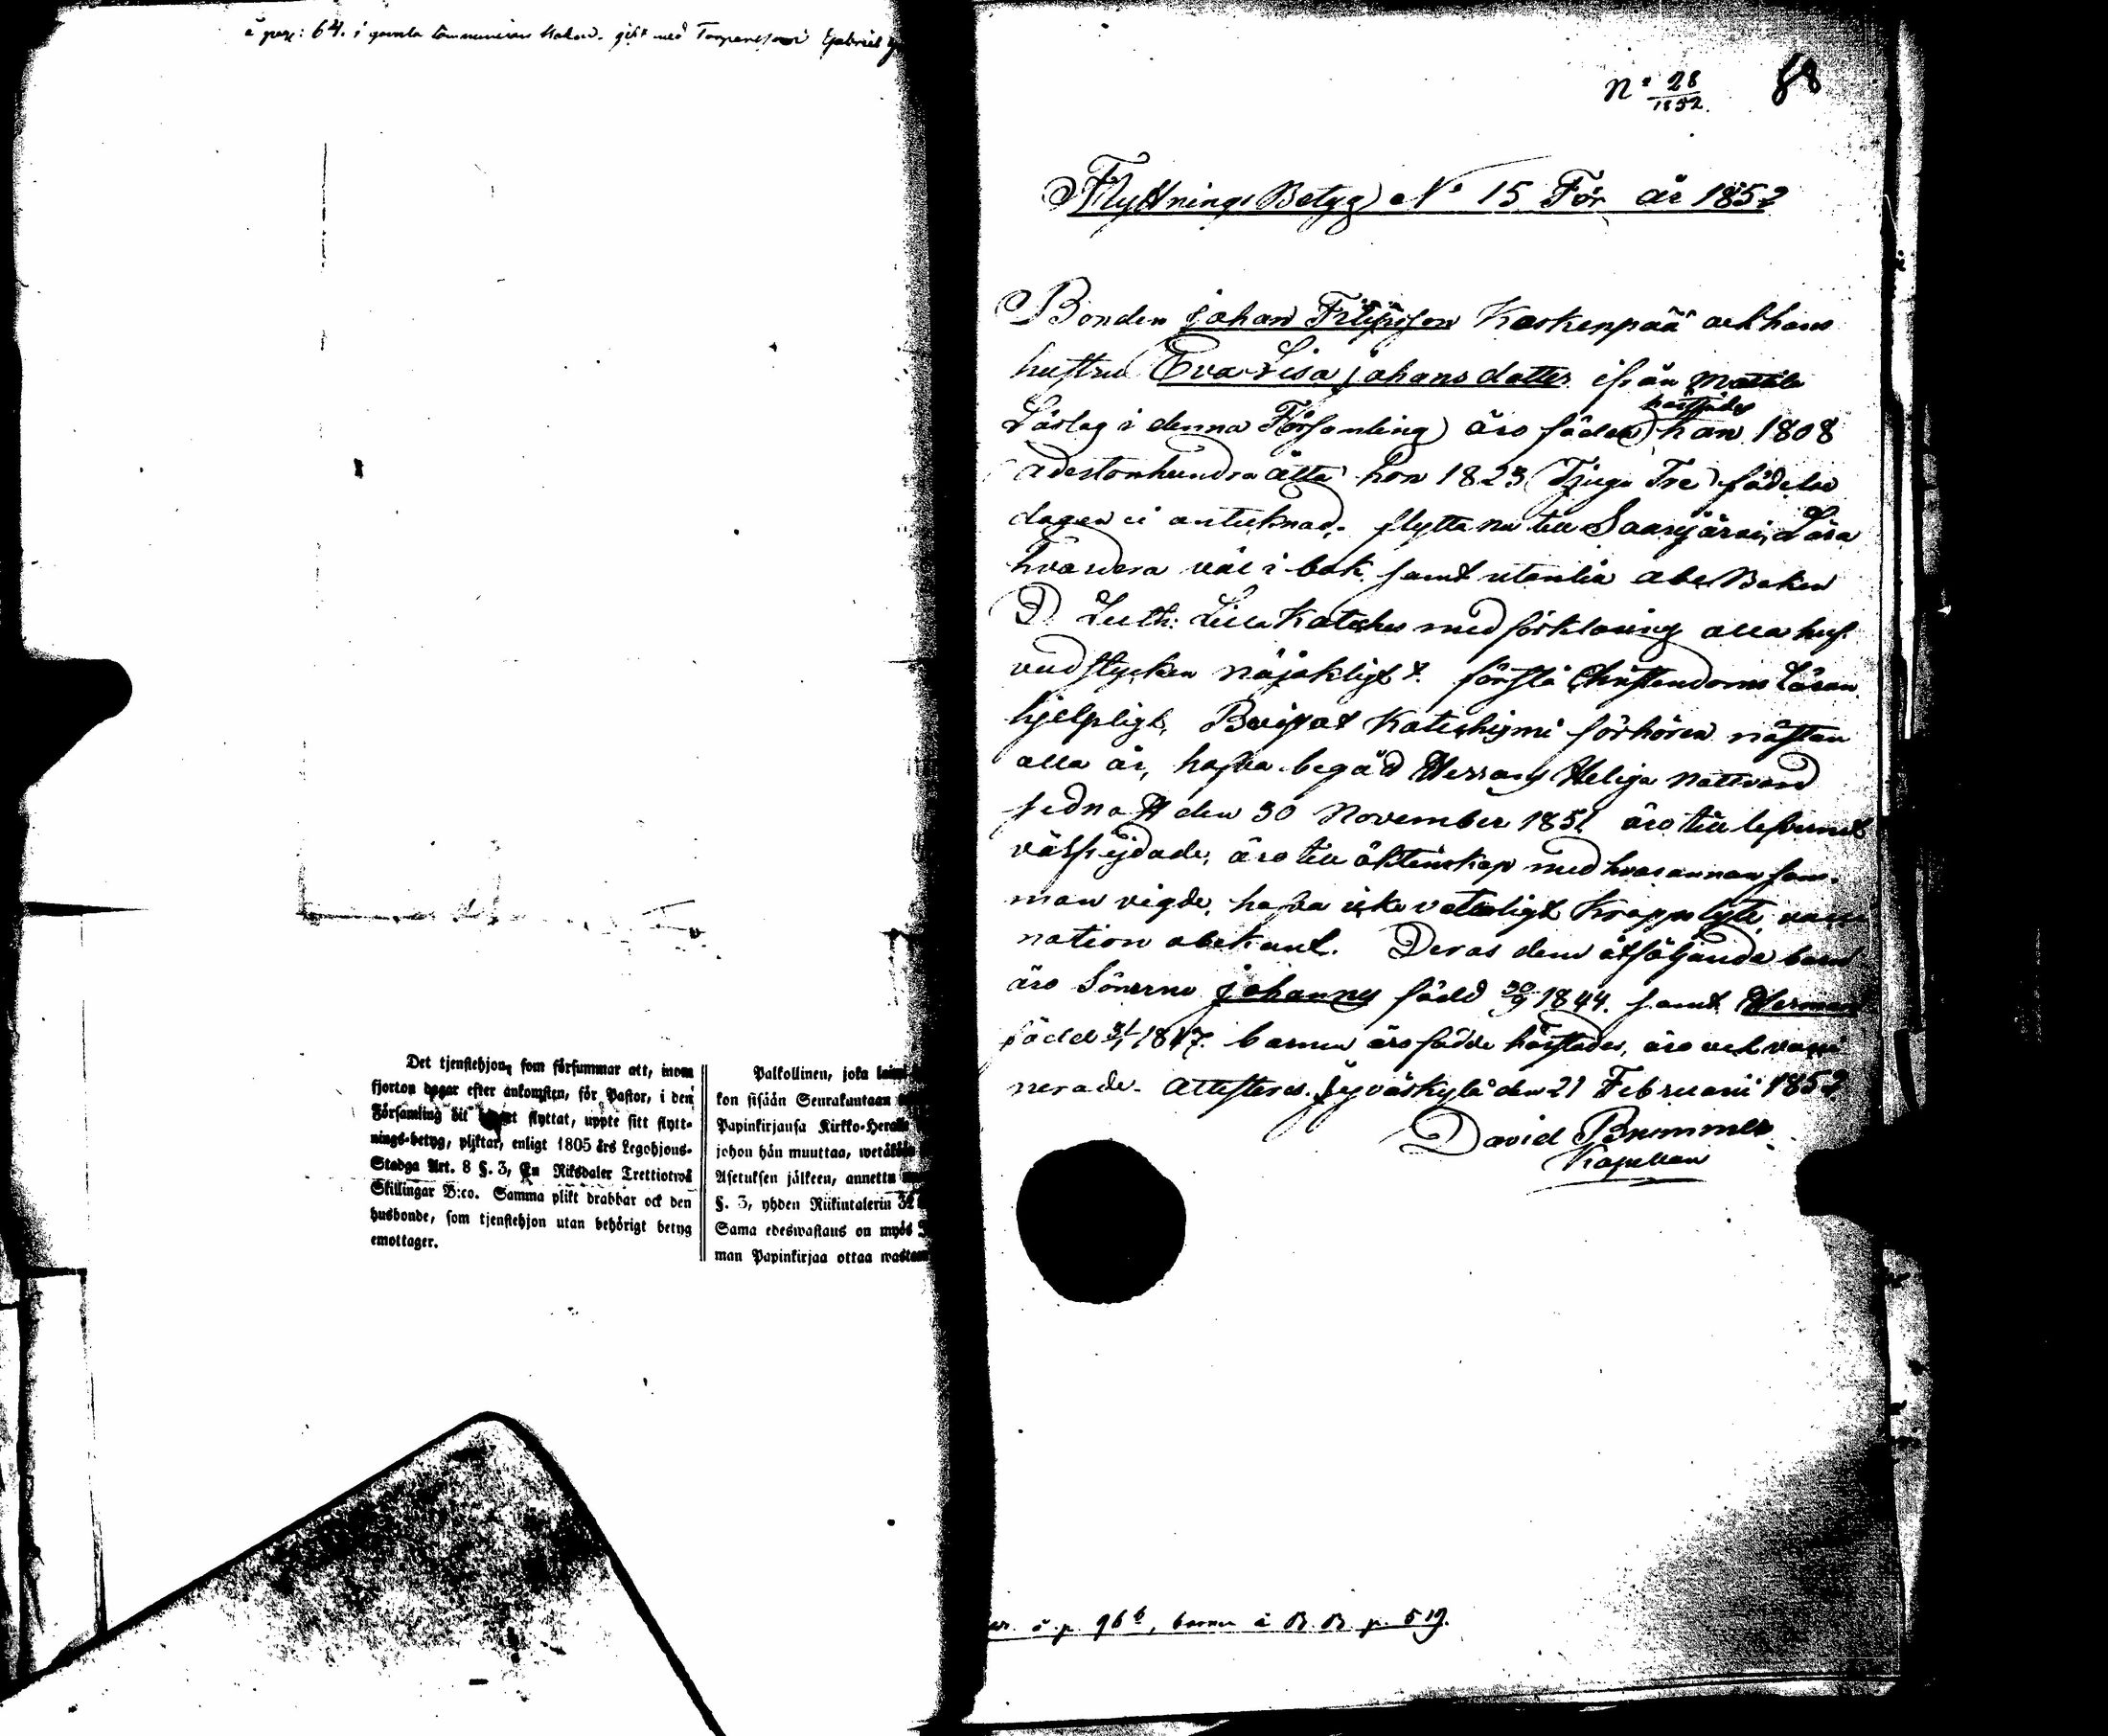 å pag: 64. i gamla Communion boken. gift med Torparesonen Gabriel
Det tjenstehjon, som försummar att, inom
fjorton dagar efter ankomsten, för Pastor, i den
Församling dit flyttat, uppte sitt flytt-
nings-betyg, pliktar, enligt 1805 års Legohjons-
Stadga Art. 8 §. 3, En Riksdaler Trettiotwå
Skillingar B:co. Samma plikt drabbar ock den
husbonde, som tjenstehjon utan behörigt betyg
emottager.
Palkollinen, joka
kon sisään Seurakuntaan
Papinkirjansa Kirkko-Herralle
johon hän muuttaa, wetäköön
Asetuksen jälkeen, annettu
§. 3, yhden Riikintalerin 32
Sama edeswastaus on myös
man Papinkirjaa ottaa wastaan
No 28
1852.
88
Flyttnings Betyg No 15 För år 1852
Bonden Johan Filipsson Koskenpää och hans
hustru Eva Lisa Johansdotter ifrån Mattila
härstädes
Läslag i denna Församling äro födde han 1808
adertonhundra åtta hon 1823 (Tjugu Tre) födelse
dagen ei antecknad, flytta nu till Saarijärvi, Läsa
hvardera väl i bok samt utanlin abc Boken
D. Luth: Lilla Kateches med förklaring alla huf-
vudstycken nöjaktigt förstå Christendoms Läran
hjelpligt, Bevistat Katechismi förhören nästan
alla år, hafva begåd Herrans Heliga Nattvard
sednast den 30 November 1851 äro till lefvernet
välfrejdade, äro till äktenskap med hvarannan sam-
man vigde, hafva icke veterligt Kroppslyte, vacci
nation obekant. Deras dem åtföljande barn
äro Sönerne Johannes född 30/9 1844. samt Herman
född 31/1 1847. barnen äro födde härstädes, äro ock vacci
nerade. Attesteras. Jyväskylä den 21 Februarii 1852
David Brummer
Kapellan
å p. 96 b, barnen å B. B p. 519.